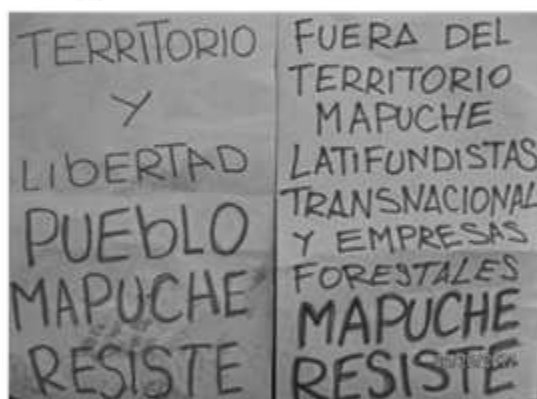 TERRITORIO
Y
LIBERTAD
PUEBLO
MAPUCHE
RESISTE
FUERA DEL
TERRITORIO
MAPUCHE
LATIFUNDISTAS
TRANSNACIONAL
Y EMPRESAS
FORESTALES
MAPUCHE
RESISTE